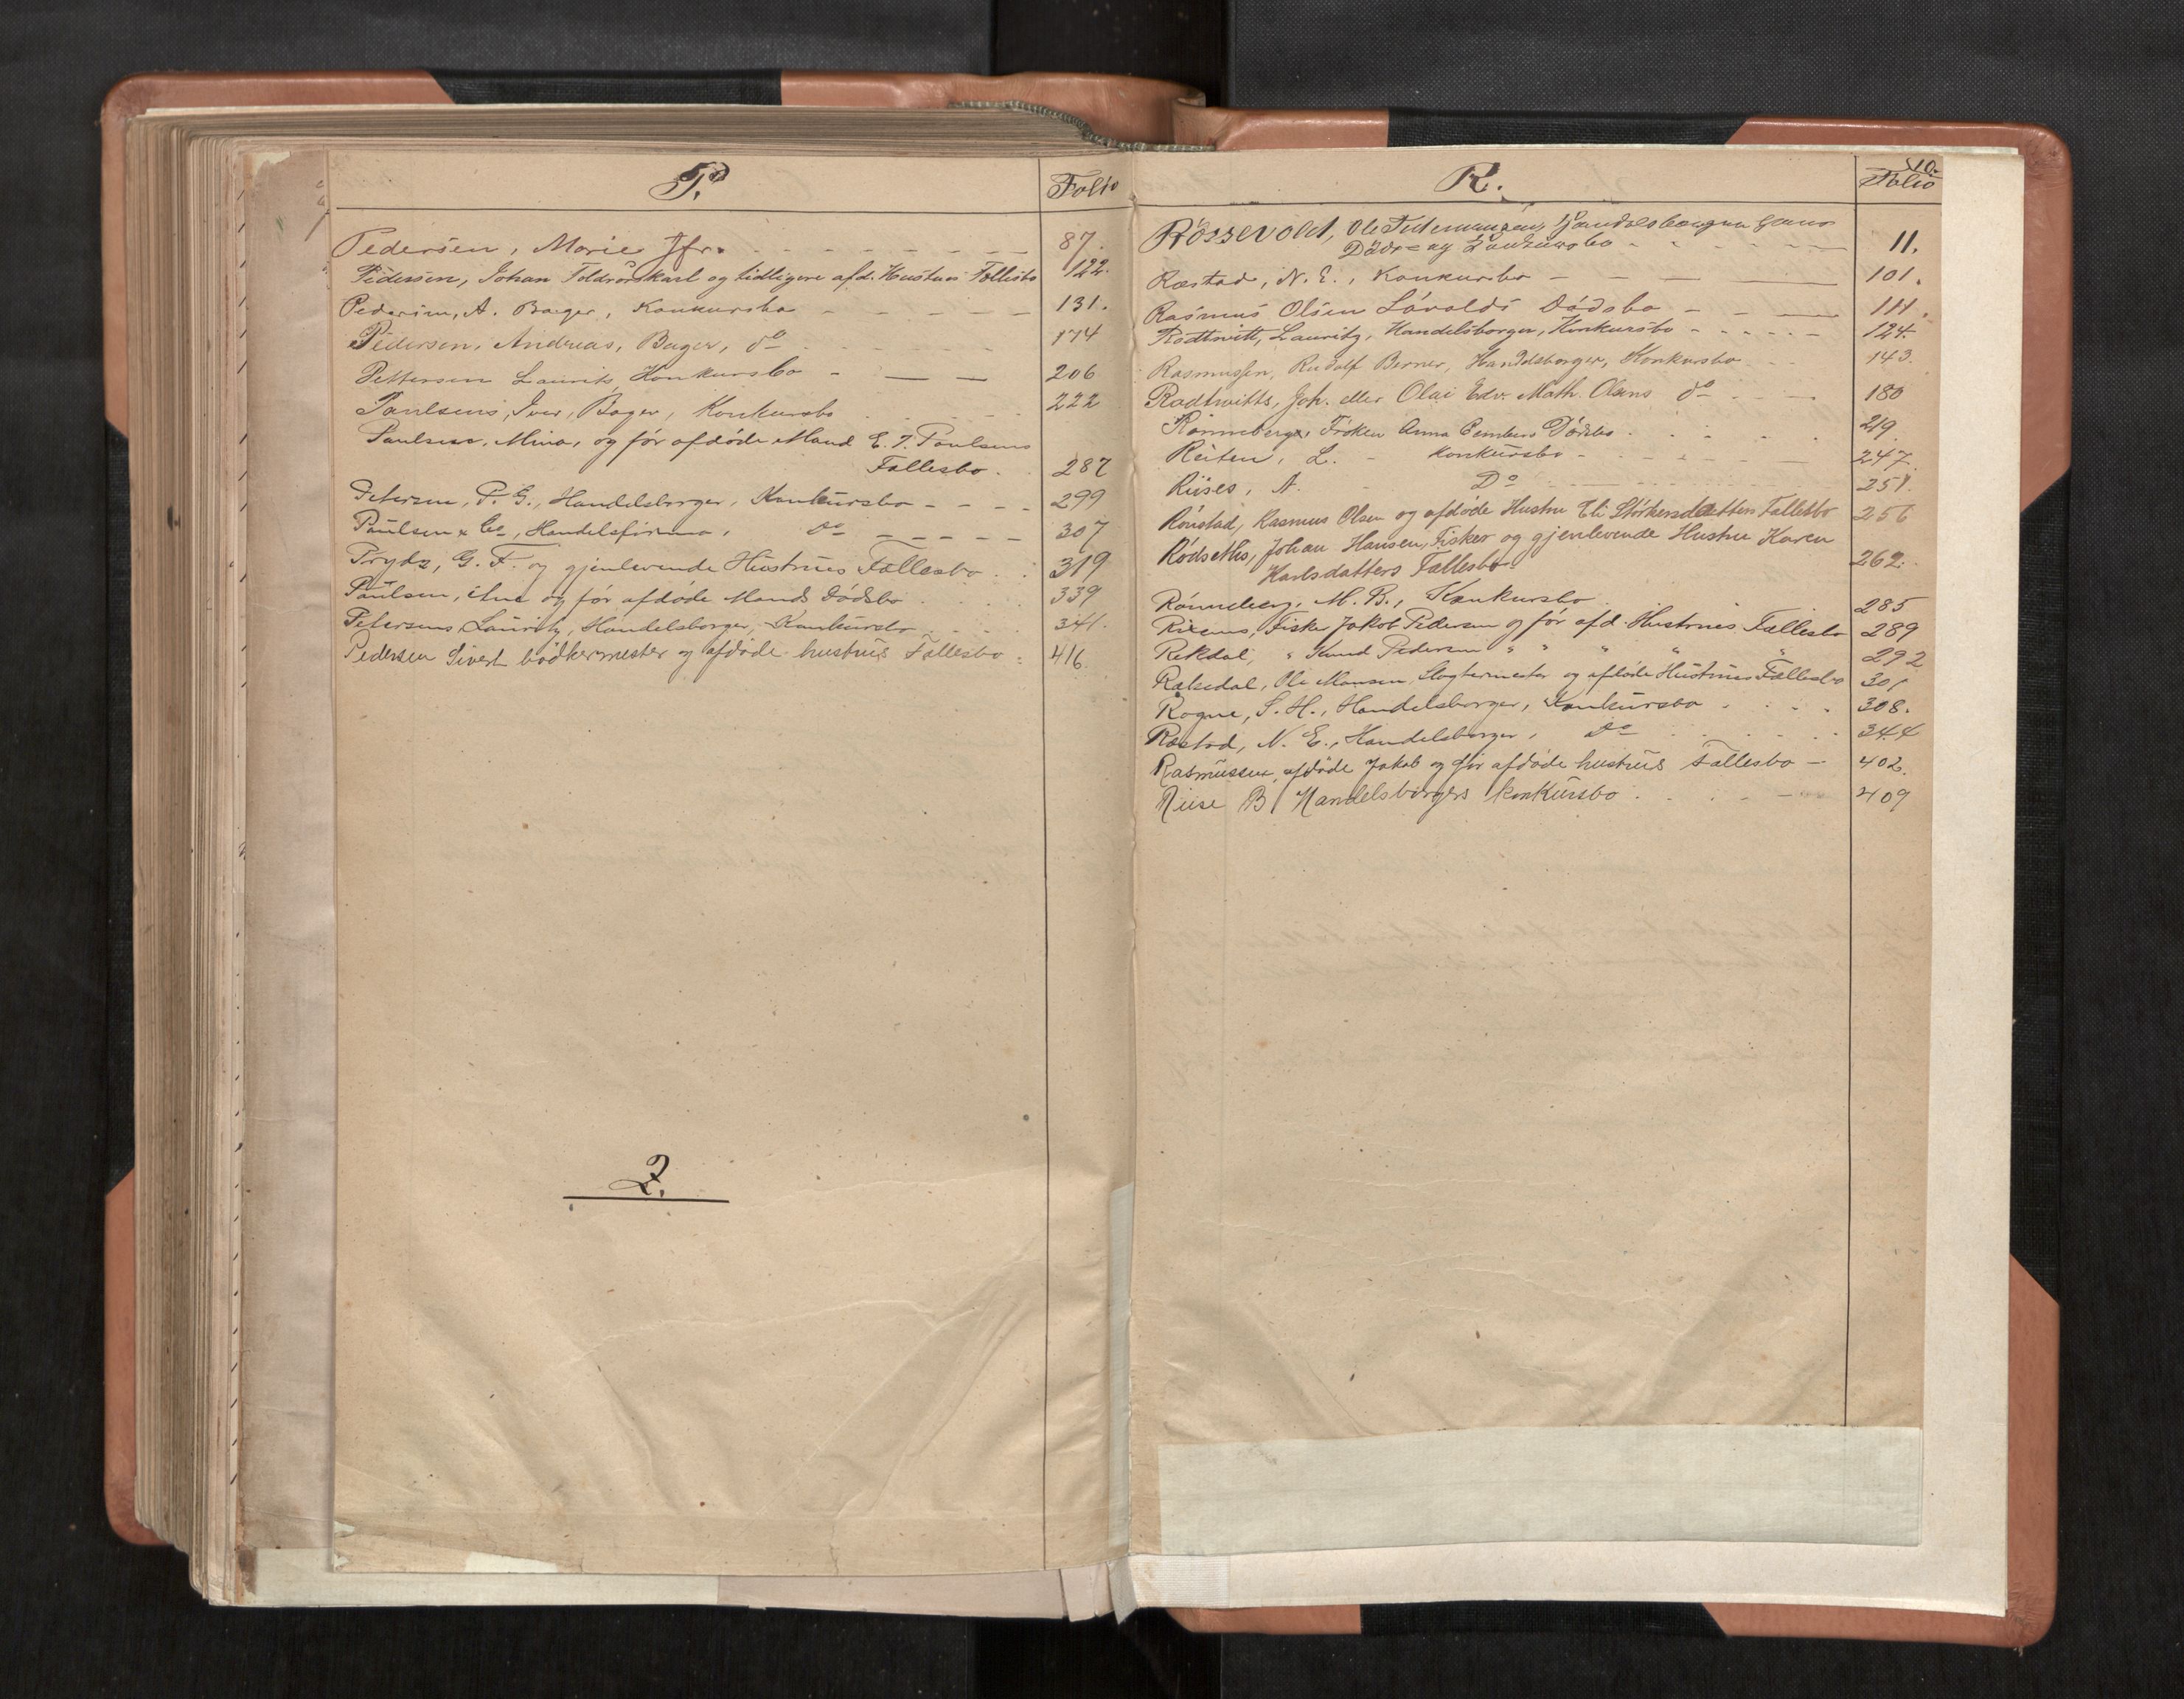 P.
Folio
Pedersen, Marie Jfr. 87.
Pedersen, Johan Toldrorskarl og tidligere afd. Hustrus Fællesbo 122.
Pedersen, A. Bager, Konkursbo 131.
Pedersen, Andreas, Bager, do 174
Pettersen Laurits, Konkursbo 206
Paulsens, Iver, Bager, Konkursbo 222
Paulsen, Mina, og før afdøde Mand E. T. Paulsens
Fællesbo. 287
Petersen, P. G., Handelsborger, Konkursbo 299
Paulsen & Co, Handelsfirma, do 307
Prydz, G. F. og gjenlevende Hustrues Fællesbo 319
Paulsen, Ane og før afdøde Mands Dødsbo 339
Petersens Lauritz, Handelsborger, Konkursbo 341.
Pedersen Sivert bødkermester og afdøde hustrus Fællesbo 416.
Q.
R.
10.
Folio
Røssevold, Ole Handelsborger
Døds= og Konkursbo 11.
Ræstad, N. E., Konkursbo 101.
Rasmus Olsen Løvolds Dødsbo 111.
Rodtwitt, Lauritz, Handelsborger, Konkursbo 124.
Rasmussen, Rudolf Berner, Handelsborger, Konkursbo 143.
Rodtwitts, Joh. eller Olai Edv. Math. Olsens do 180
Rønneberg, Frøken Anna Dødsbo 219.
Reiten, L. Konkursbo 247.
Riises, A. Do 251.
Rønstad, Rasmus Olsen og afdøde Hustru Eli Størkersdatters Fællesbo 256
Rødseths, Johan Hansen, Fisker og gjenlevende Hustru Karen
Karlsdatters Fællesbo 262.
Rønneberg, M. B., Konkursbo 285
Rixens, Fisker Jakob Pedersen og før afd. Hustrues Fællesbo 289
Rekdal, " Knud Pedersen " " " " " 292
Rekedal, Ole Monsen, Slagtermester og afdøde Hustrues Fællesbo 301
Rogne, S. H., Handelsborger, Konkursbo 308.
Ræstad, N. E., Handelsborger, do 344
Rasmussen, afdøde Jakob og før afdøde hustrues Fællesbo 402.
Riise B. Handelsborgers konkursbo 409